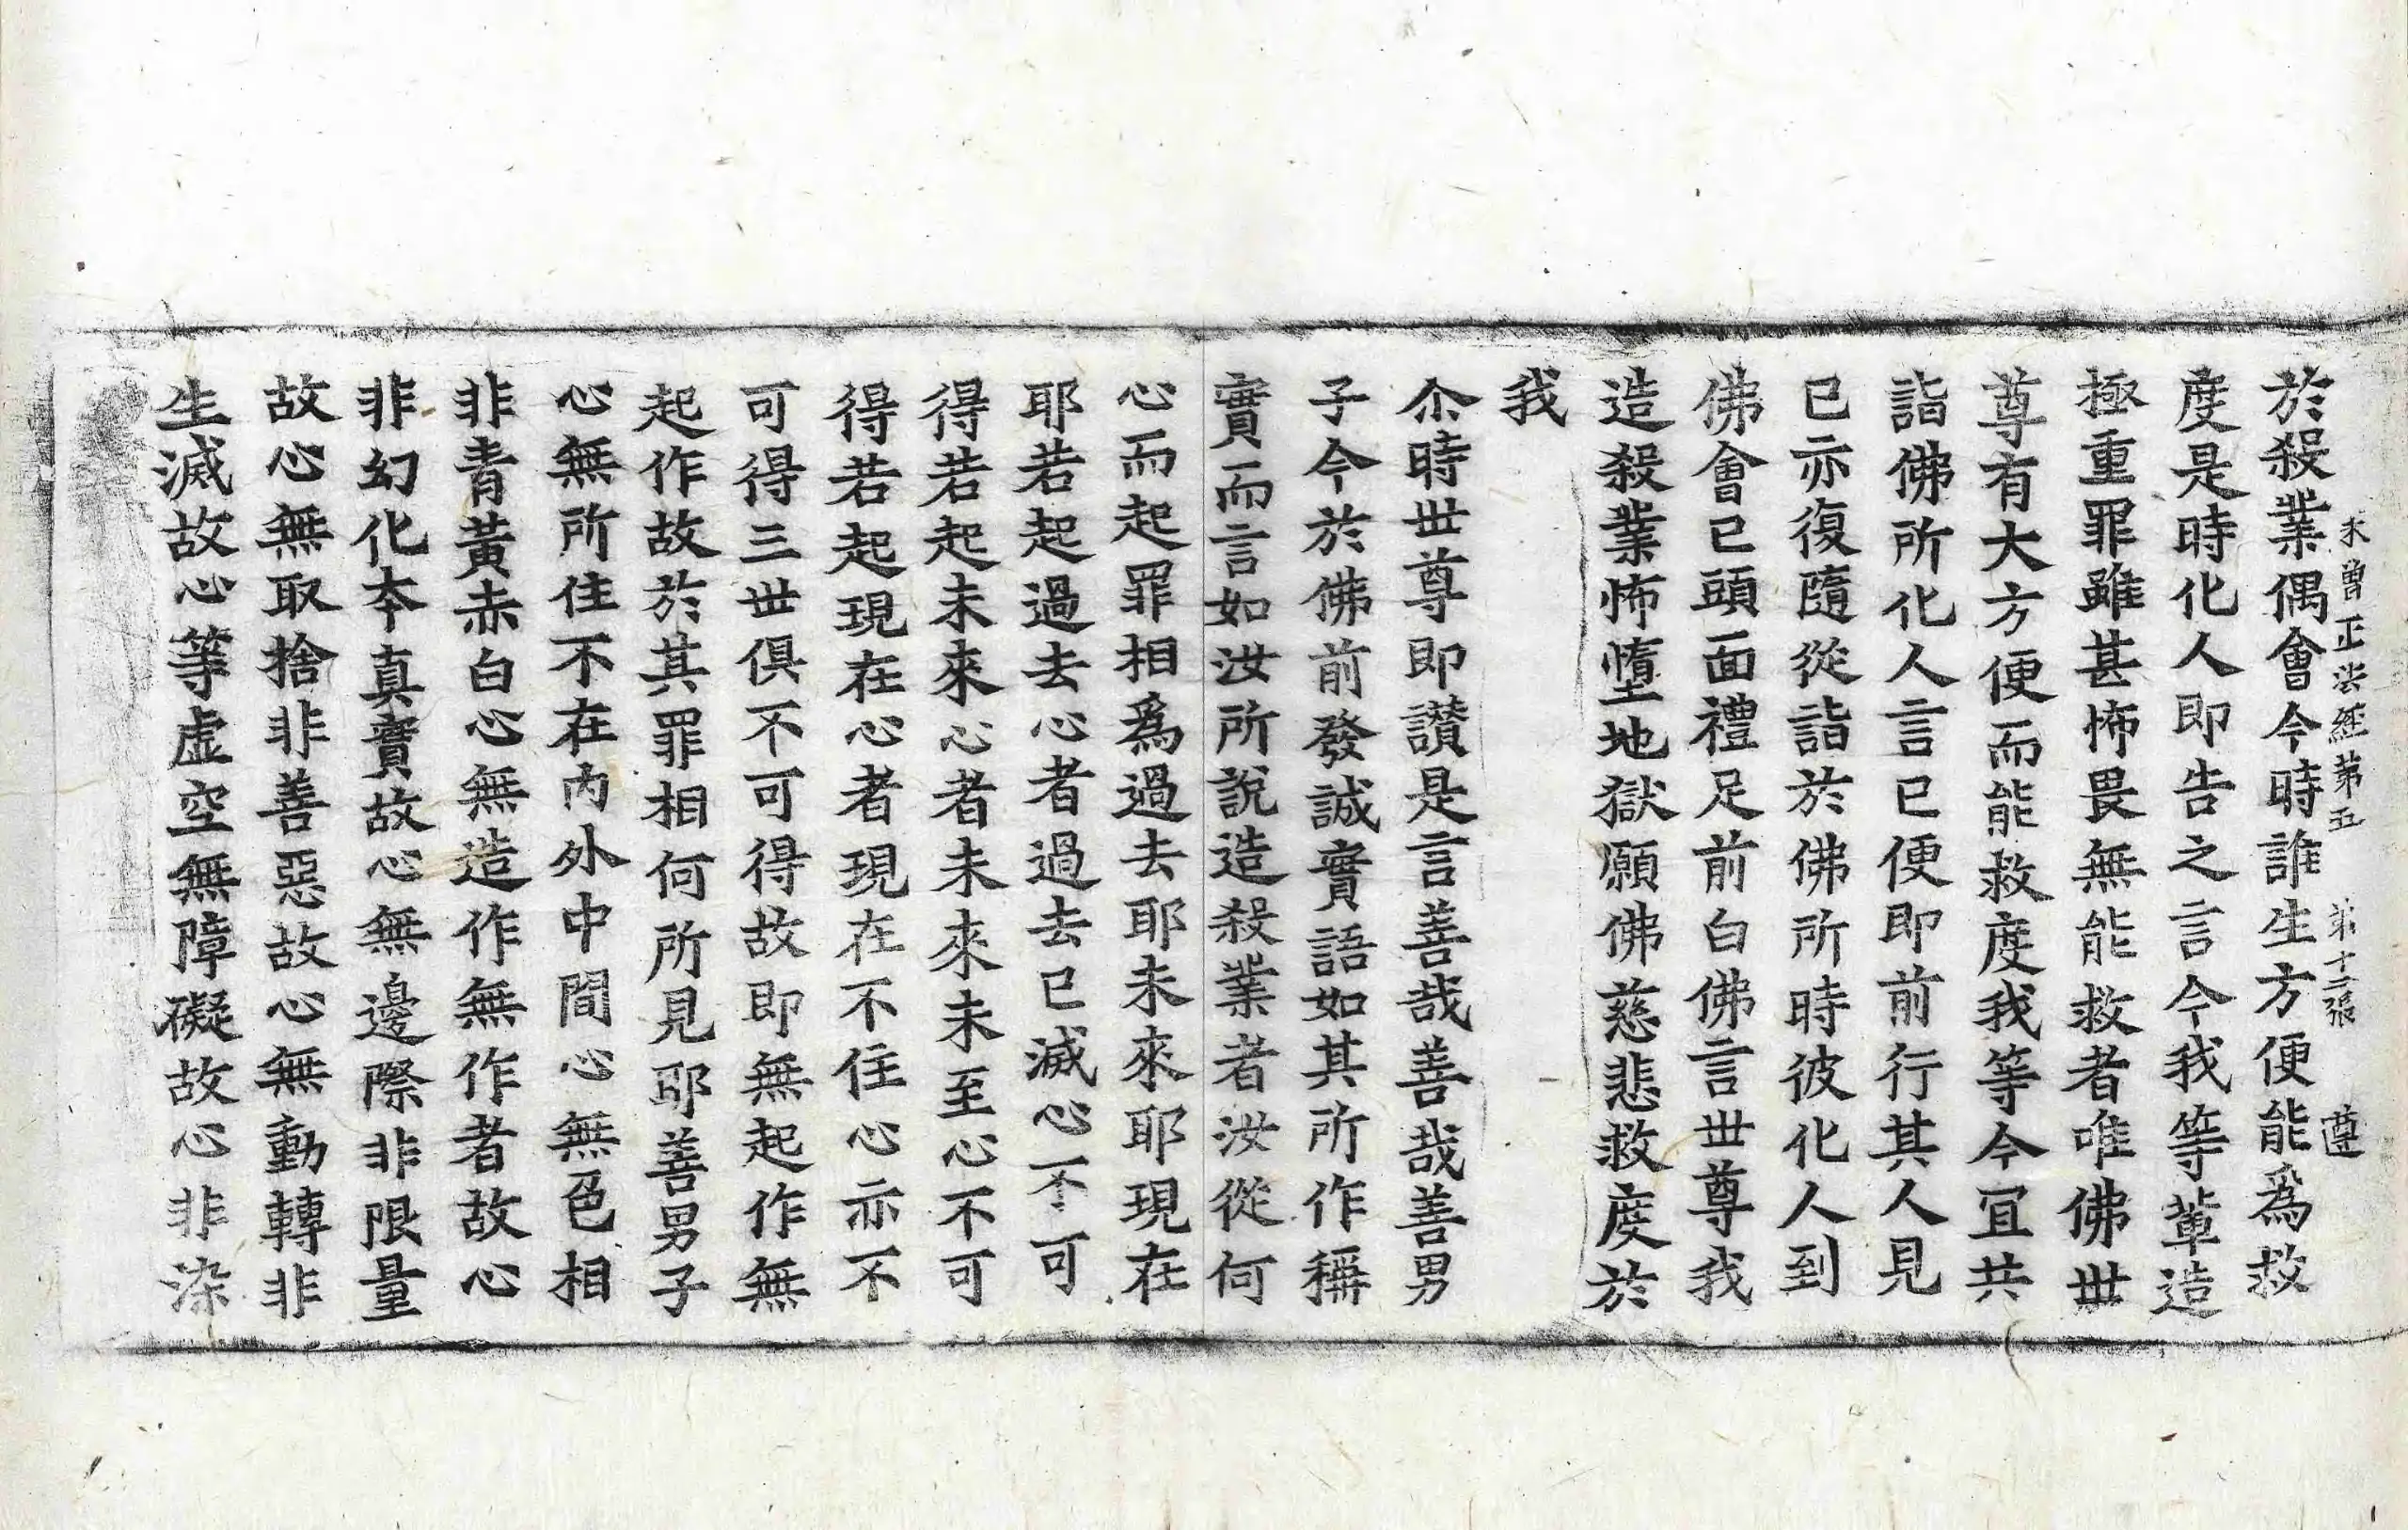 未曾正法経第五 第十二張 遵
於殺業偶會今時誰生方便能爲救
度是時化人即告之言今我等輩造
極重罪雖甚怖畏無能救者唯佛世
尊有大方便而能救度我等今冝共
詣佛所化人言已便即前行其人見
已亦復隨從詣於佛所時彼化人到
佛會已頭面禮足前白佛言世尊我
造殺業怖墮地獄願佛慈悲救度於
我
尒時世尊即讃是言善哉善哉善男
子今於佛前發誠實語如其所作稱
實而言如汝所說造殺業者汝從何
心而起罪相爲過去耶未來耶現在
耶若起過去心者過去已滅心不可
得若起未來心者未來未至心不可
得若起現在心者現在不住心亦不
可得三世俱不可得故即無起作無
起作故於其罪相何所見耶善男子
心無所住不在內外中間心無色相
非青黃赤白心無造作無作者故心
非幻化本真實故心無邊際非限量
故心無取捨非善惡故心無動轉非
生滅故心等虛空無障礙故心非染